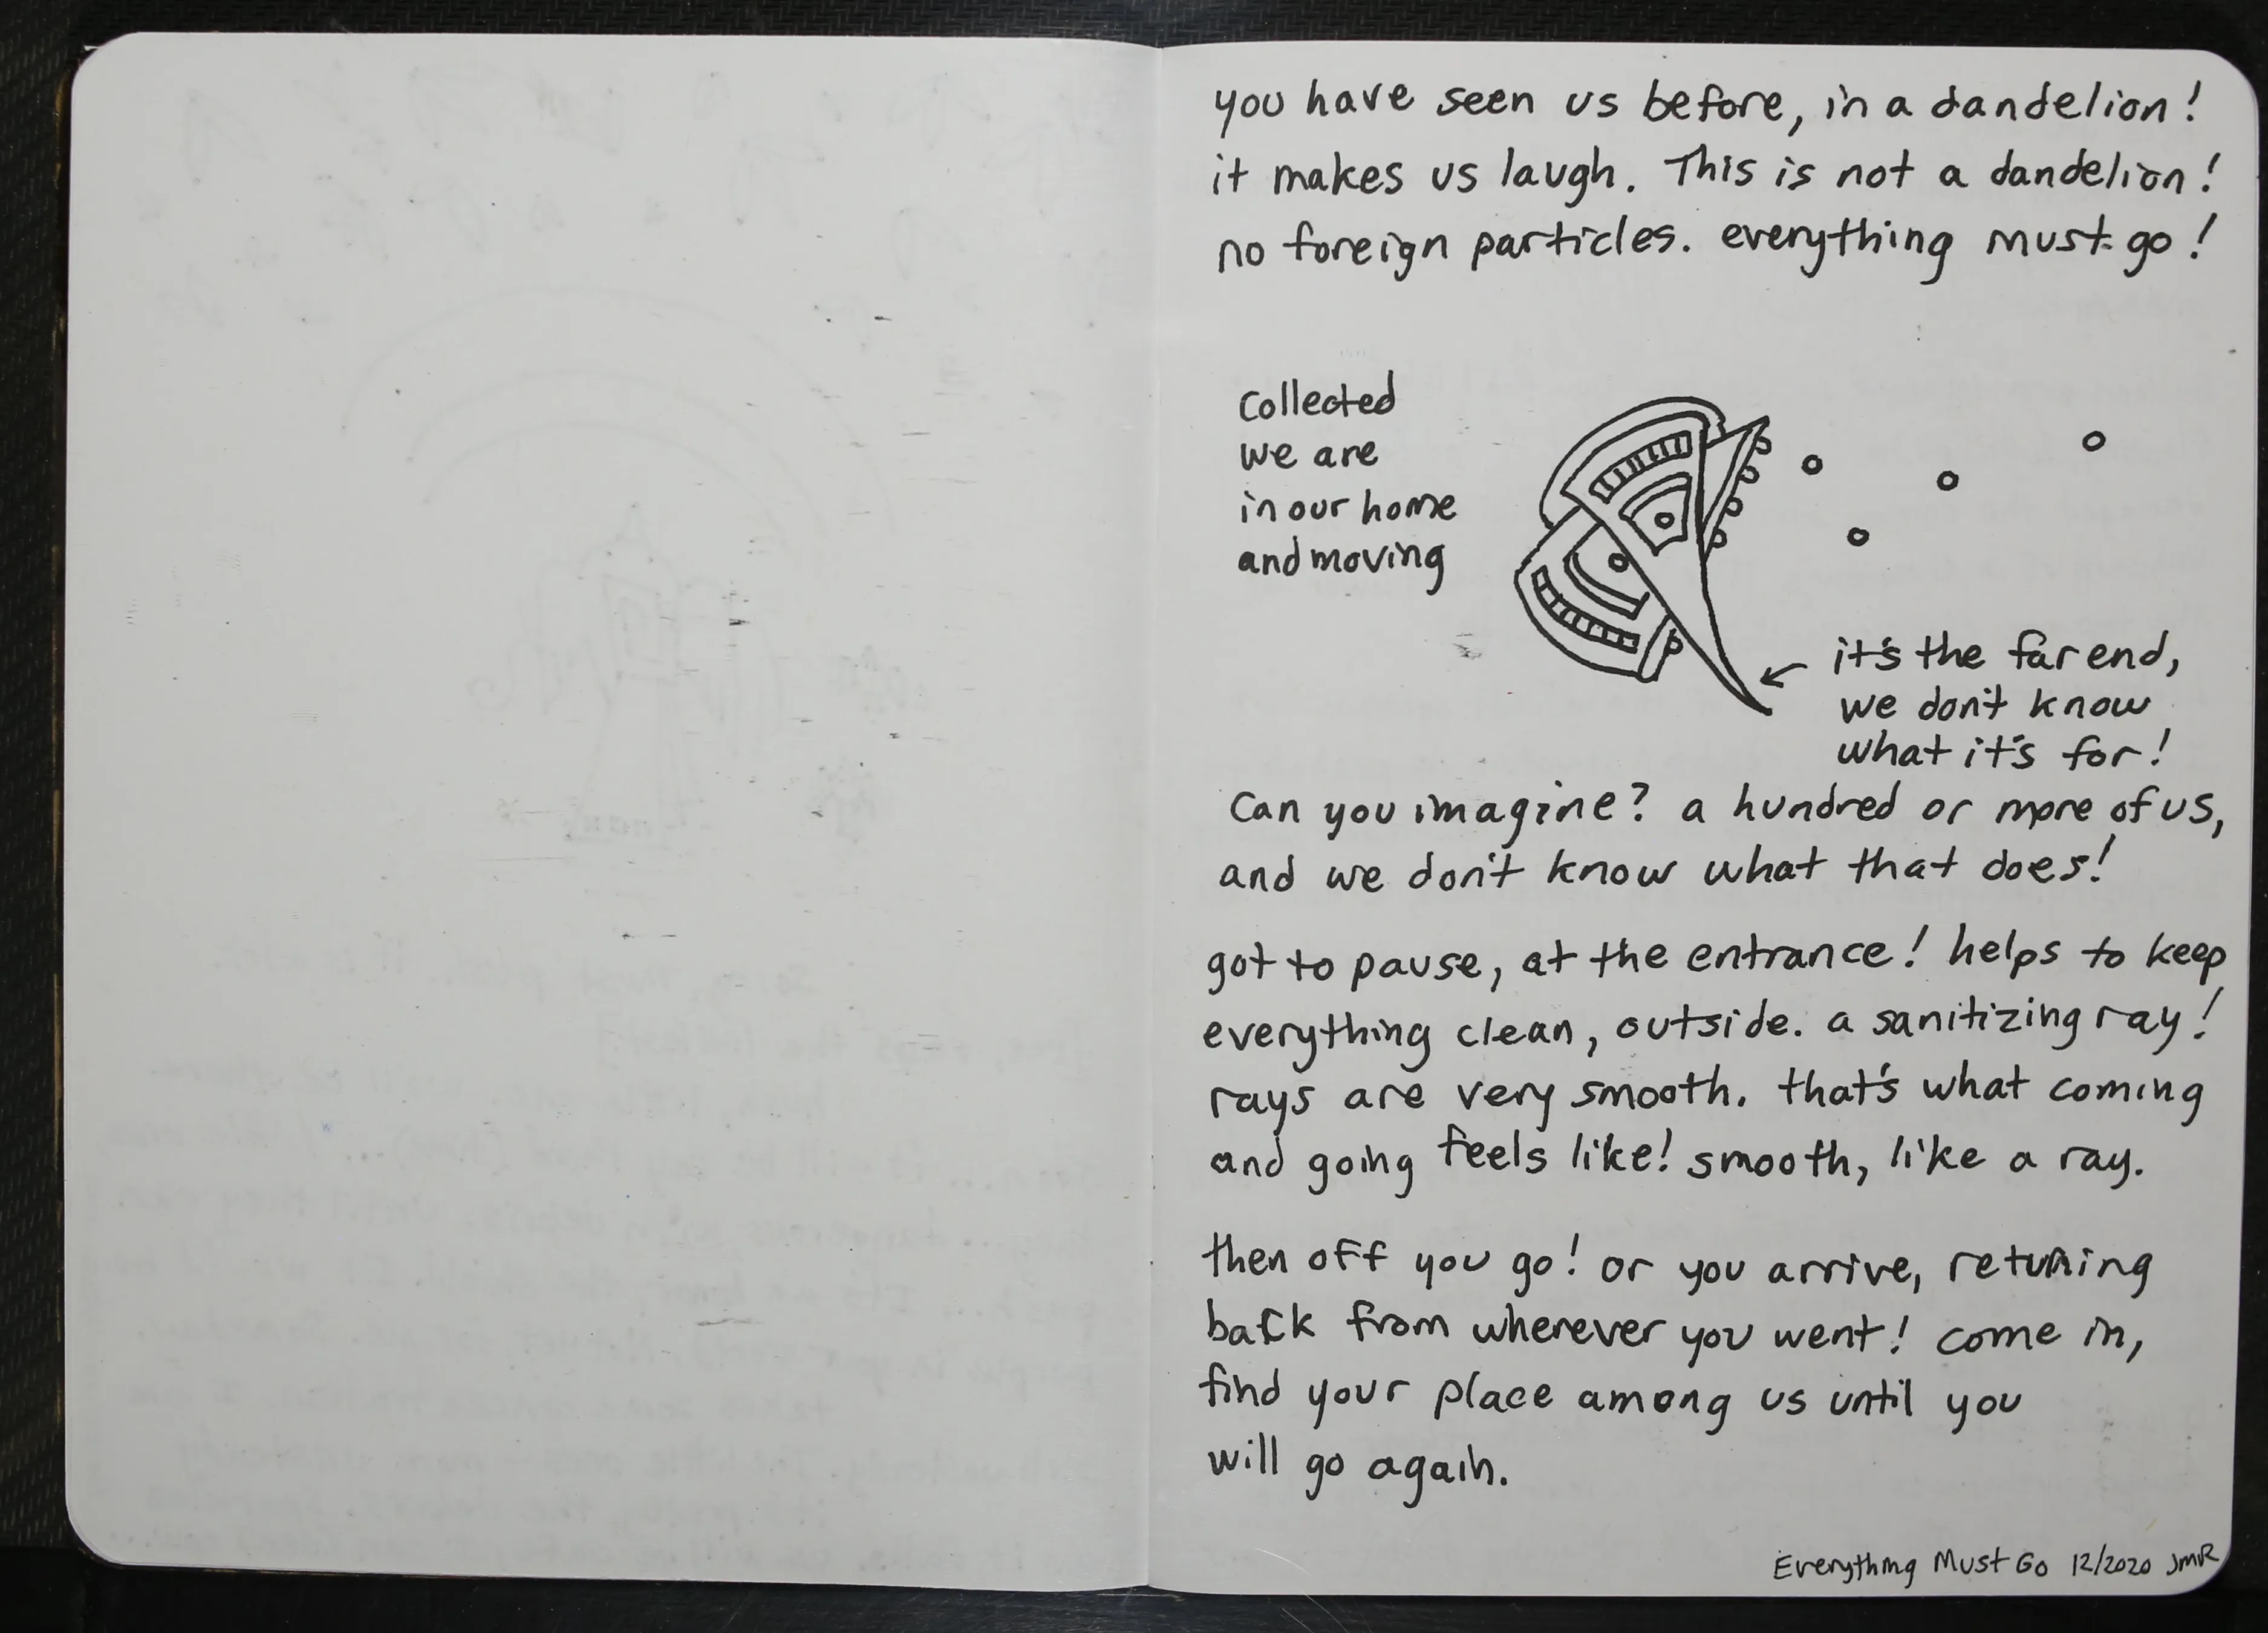 you have seen us before, in a dandelion!
it makes us laugh. This is not a dandelion!
no foreign particles. everything must go!
Collected
we are
in our home
and moving
it's the far end,
we don't know
what it's for!
Can you imagine? a hundred or more of us,
and we don't know what that does!
got to pause, at the entrance! helps to keep
everything clean, outside. a sanitizing ray!
rays are very smooth. that's what coming
and going feels like! smooth, like a ray.
then off you go! or you arrive, returning
back from wherever you went! come in,
find your place among us until you
will go again.
Everything Must Go 12/2020 JMR